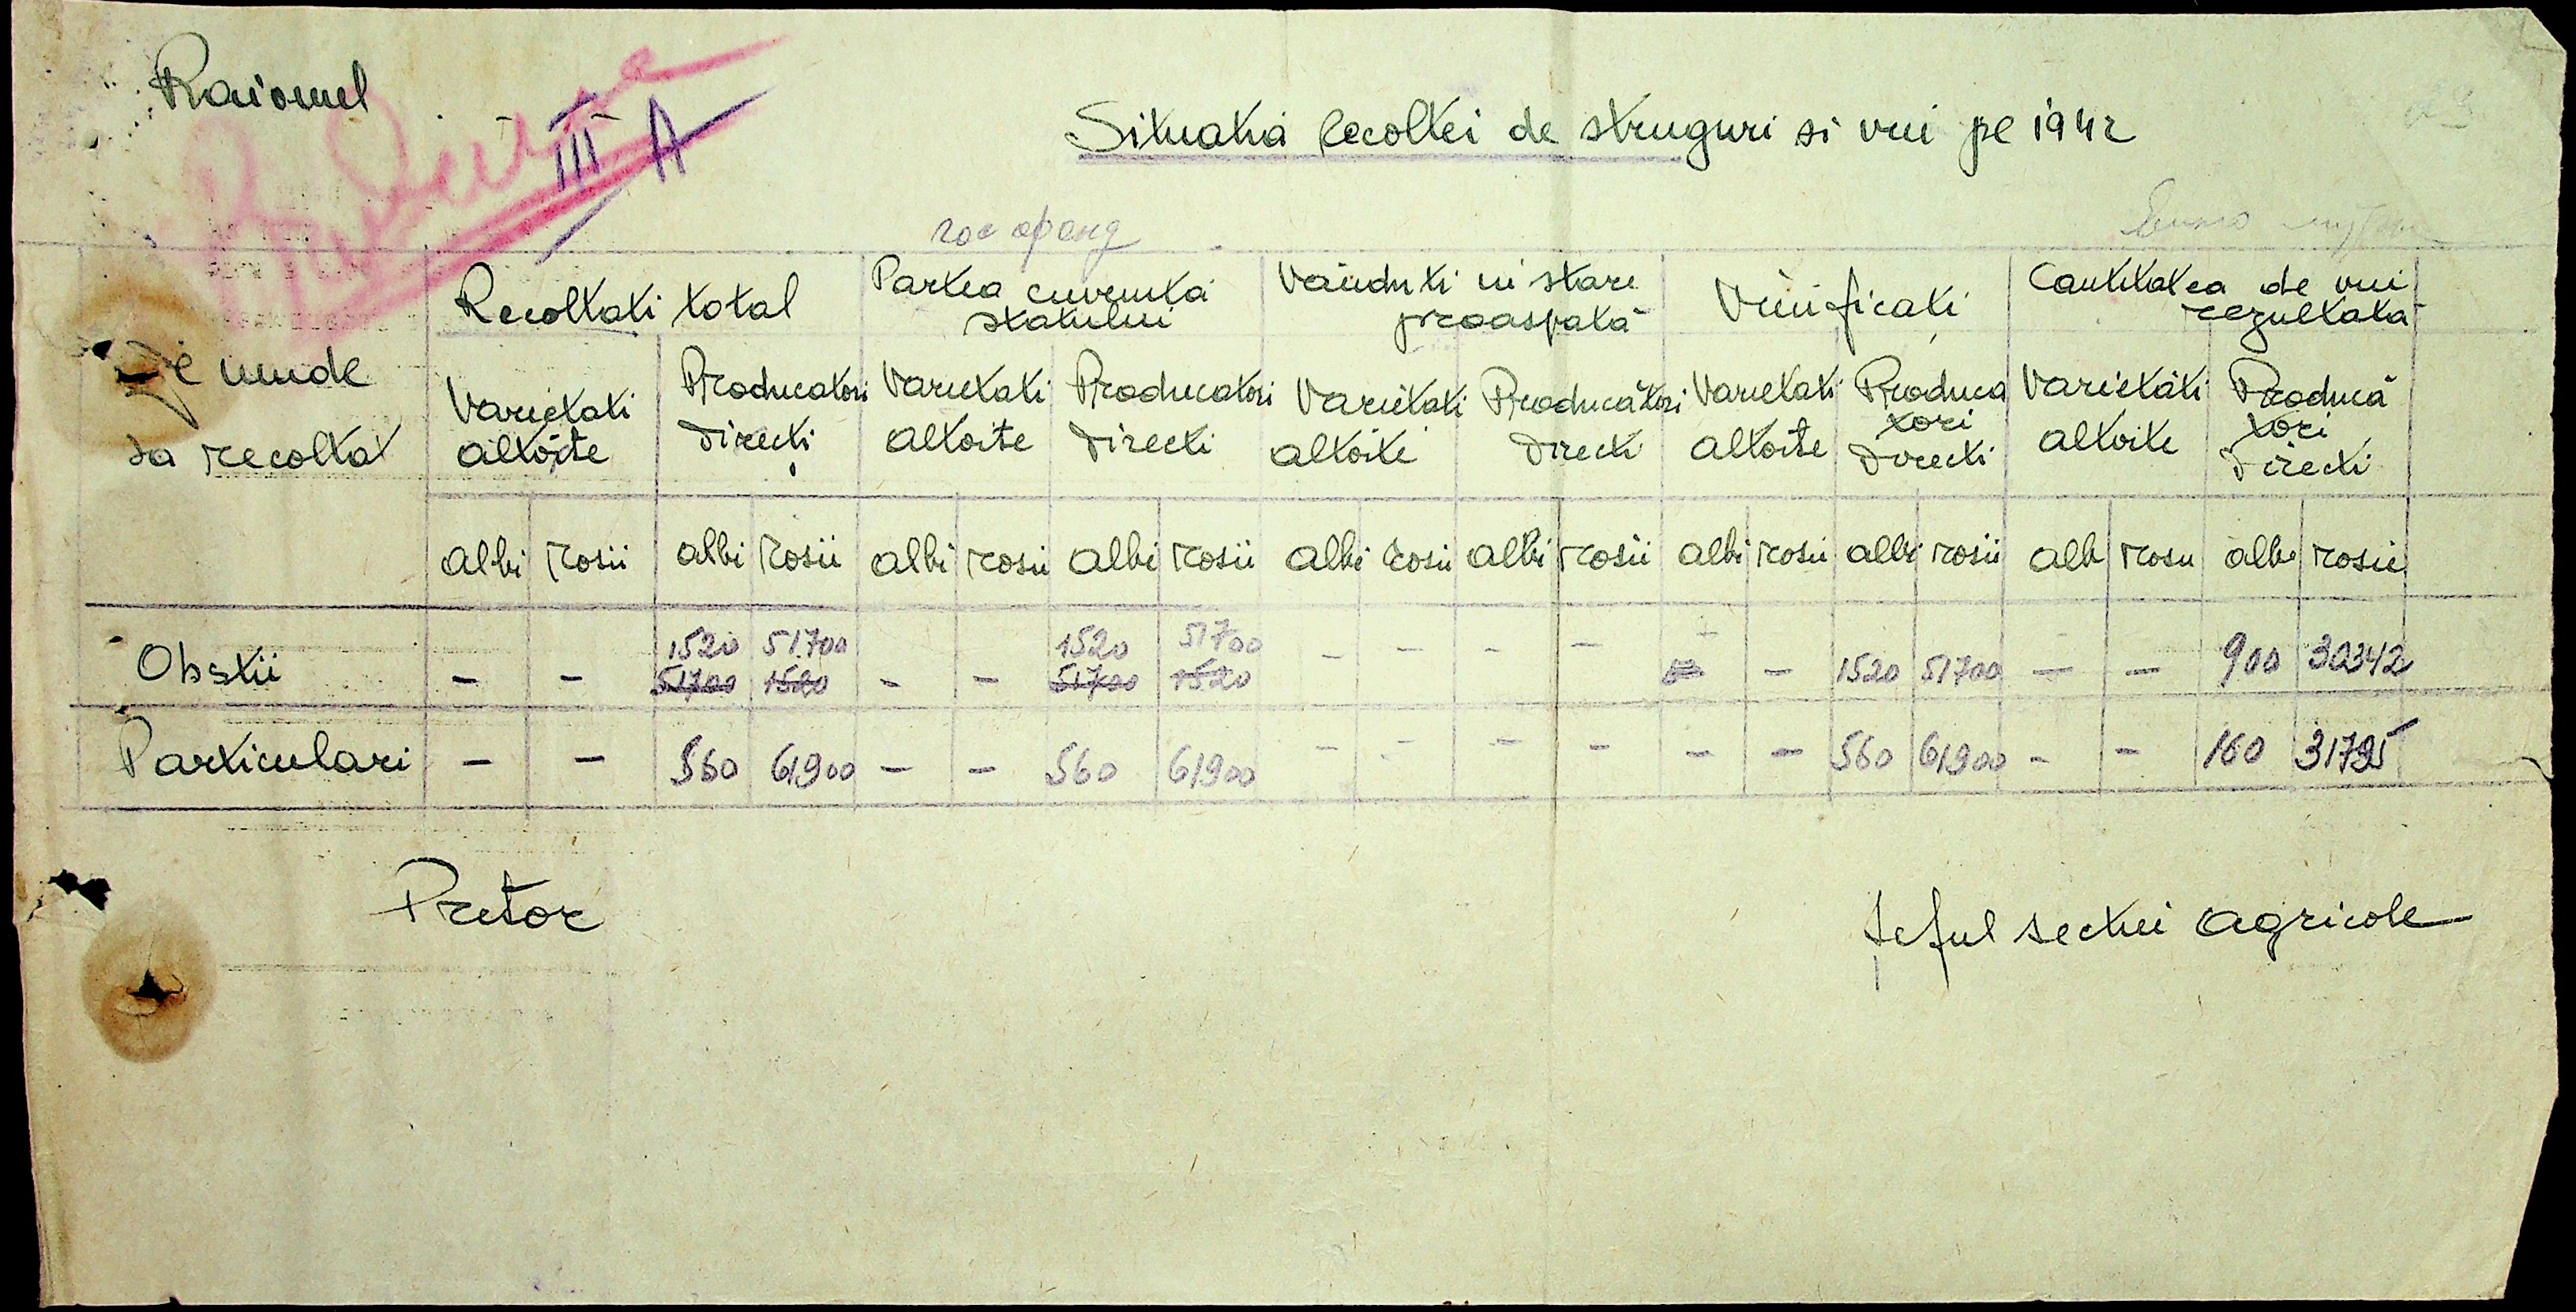 Raionul
III A
Situatia recoltei de struguri si vin pe 1942
гос фонд
De unde sa recoltat
Recoltati total
Partea cuvenita statului
Vânduti in stare proaspată
Vinificati
Cantitatea de vin rezultata
Varietati altoite
Producatori directi
Varietati altoite
Producatori directi
Varietati altoite
Producători directi
Varietati altoite
Producatori directi
Varietăti altoite
Producă tori directi
albi rosii albi rosii albi rosii albi rosii albi rosii albi rosii albi rosii albi rosii alb rosu albi rosii
1520 51.700 1520 51700
Obstii - - 51700 1520 - - 51700 1520 - - - - - - 1520 51700 - - 900 30342
Particulari - - 560 61900 - - 560 61900 - - - - - - 560 61900 - - 160 31795
Pretor
Seful sectiei agricole